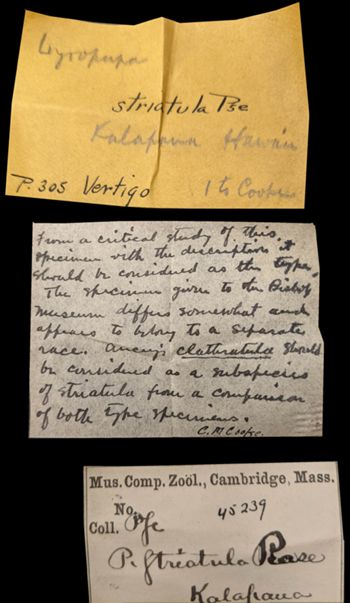 Lyropupa
striatula Pse
Kalapana Hawaii
P. 305 Vertigo 1 to Cooke
From a critical study of this
specimen with the description it
should be considered as the type.
The specimen given to the Bishop
Museum differs somewhat and
appears to belong to a separate
race. Ancey's clathratula should
be considered as a subspecies
of striatula from a comparison
of both type specimens.
C. M Cooke.
Mus. Comp. Zoöl., Cambridge, Mass.
No. 45239
Coll. Pse
P. Striatula Pease
Kalapana